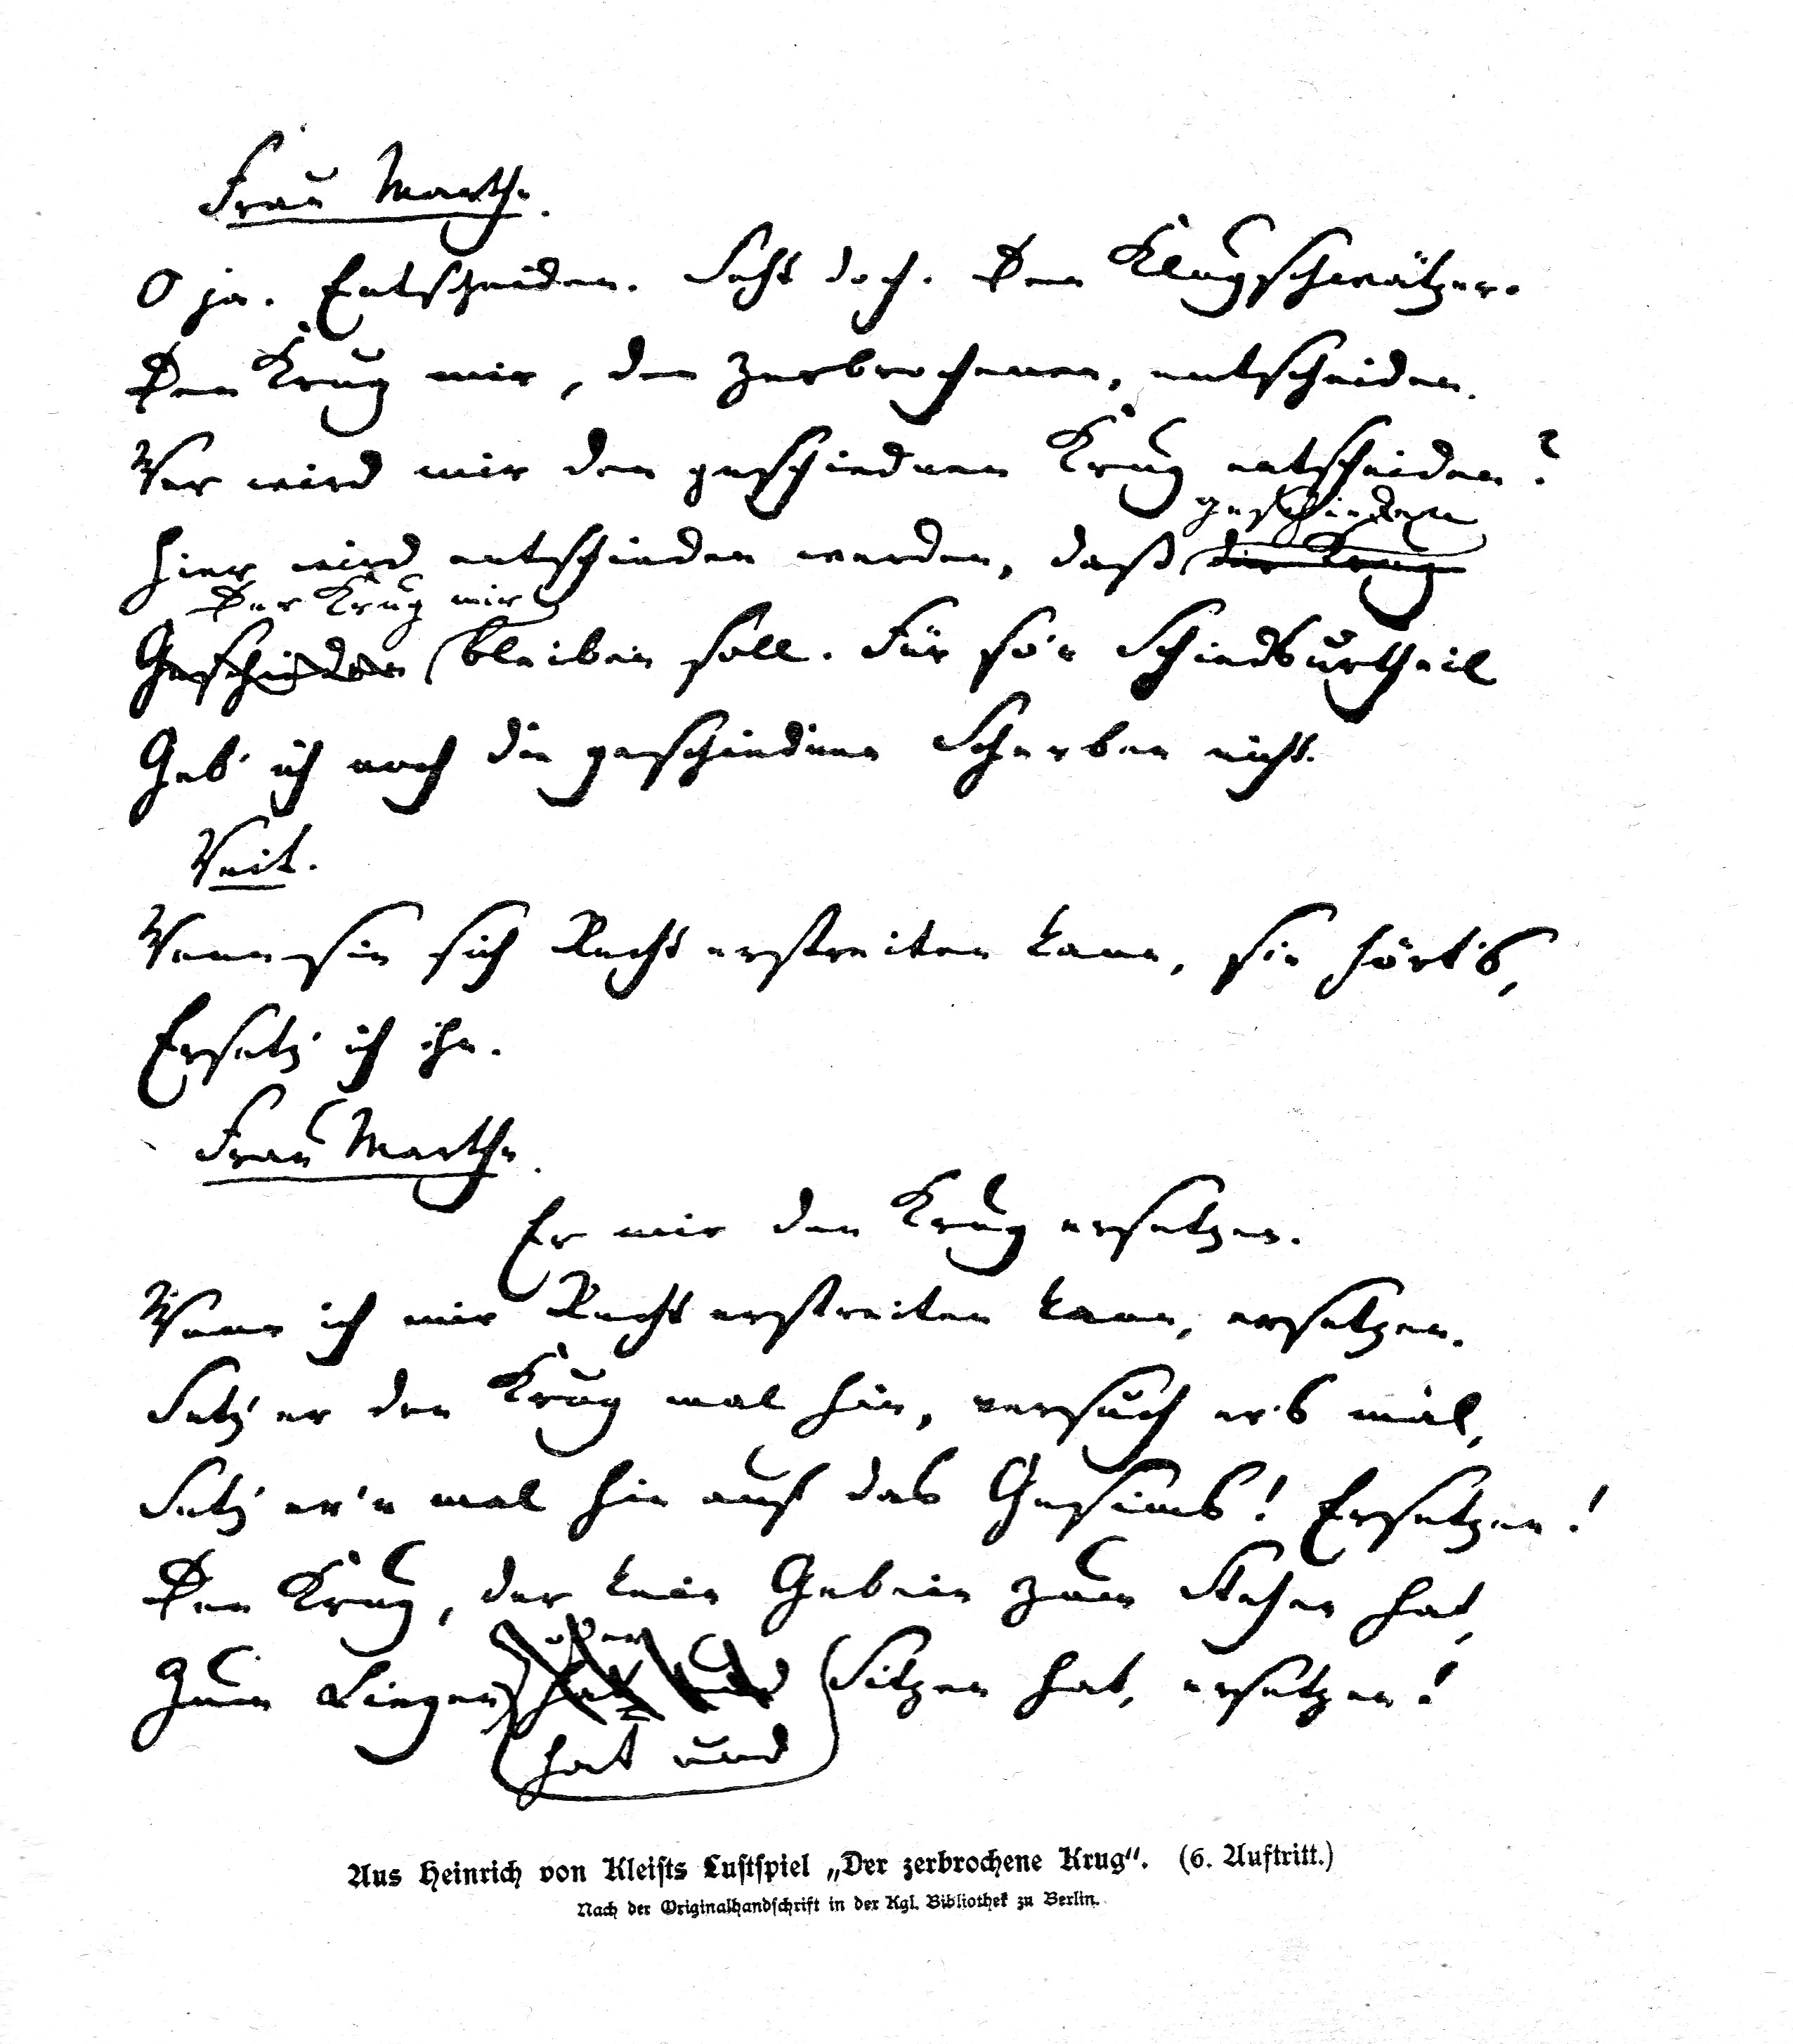 Frau Marthe.
O ja. Entscheiden. Seht doch. Den Klugschwätzer.
Den Krug mir, den zerbrochenen, entscheiden.
Wer wird mir den geschiednen Krug entscheiden?
geschieden
Hier wird entschieden werden, daß der Krug
Der Krug mir
Geschieden bleiben soll. Für so'n Schiedsurtheil
Geb' ich noch die geschiednen Scherben nicht.
Veit.
Wenn sie sich Recht erstreiten kann, sie hört's,
Ersetz' ich ihn.
Frau Marthe.
Er mir den Krug ersetzen.
Wenn ich mir Recht erstreiten kann, ersetzen.
Setz' er den Krug mal hin, versuch er's mal,
Setz' er'n mal hin auf das Gesims! Ersetzen!
Den Krug, der kein Gebein zum Stehen hat,
oder
Zum Liegen hat und Sitzen hat, ersetzen!
hat und
Aus Heinrich von Kleists Lustspiel „Der zerbrochene Krug“. (6. Auftritt.)
Nach der Originalhandschrift in der Kgl. Bibliothek zu Berlin.